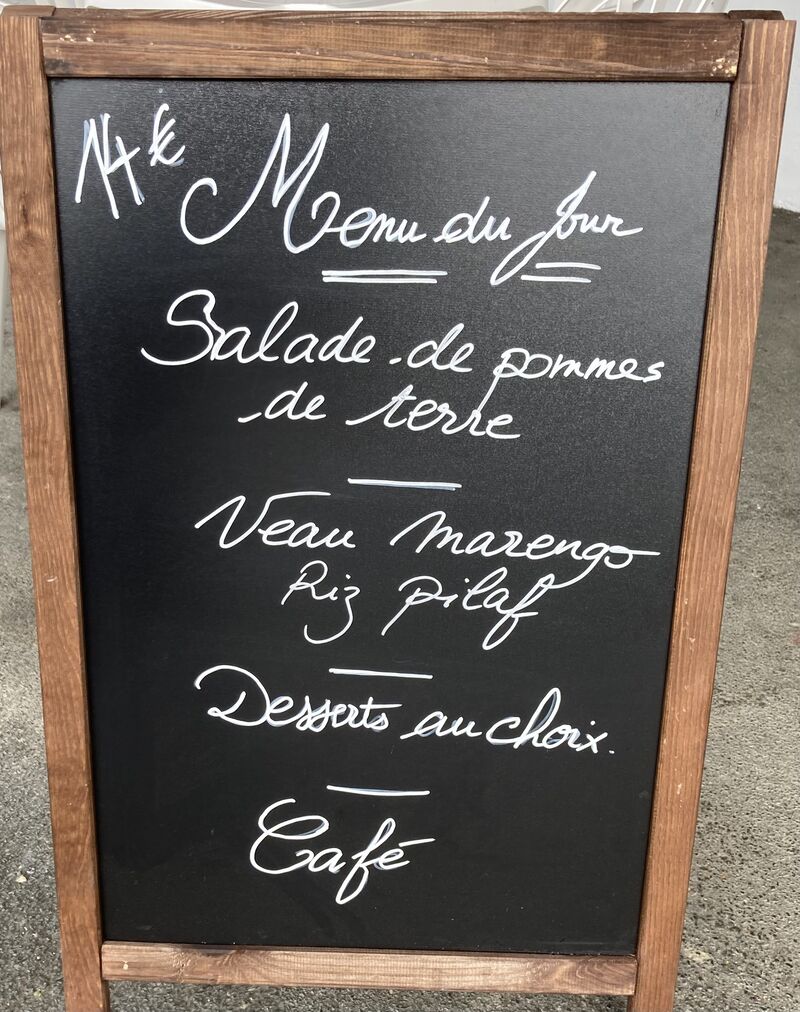 14€ Menu du Jour
Salade de pommes
de terre
Veau marengo
Riz pilaf
Desserts au choix.
Café